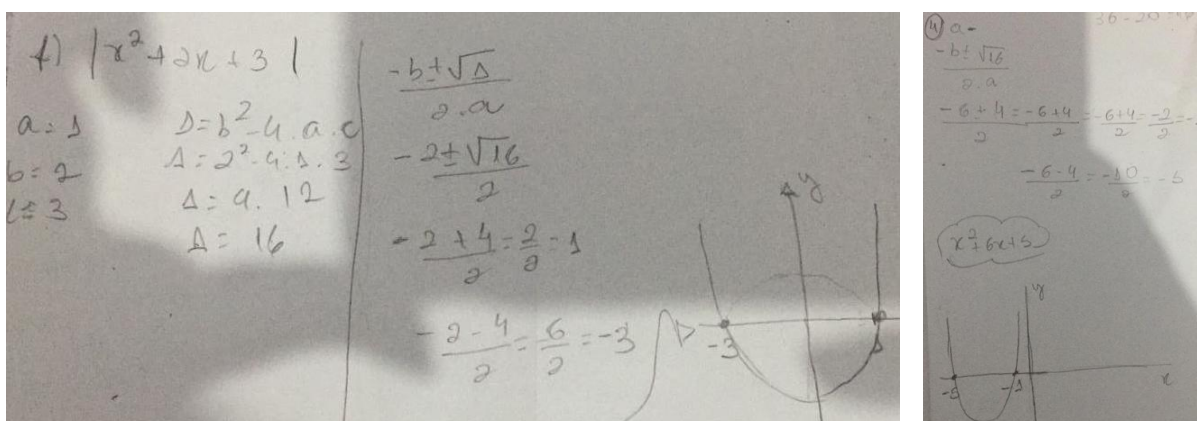 f) |x² + 2x + 3|
a = 1
b = 2
c = 3
Δ = b² - 4 . a . c
Δ = 2² - 4 . 1 . 3
Δ = 4 . 12
Δ = 16
-b ± √Δ
2 . a
-2 ± √16
2
-2 + 4 = 2 = 1
2 2
-2 - 4 = 6 = -3
2 2
y
-3
1
4) a-
36 - 20 =
-b ± √16
2 . a
-6 ± 4 = -6 + 4 = -6 + 4 = -2 = -
2 2 2 2
-6 - 4 = -10 = -5
2 2
x² + 6x + 5
y
-5
-1
x